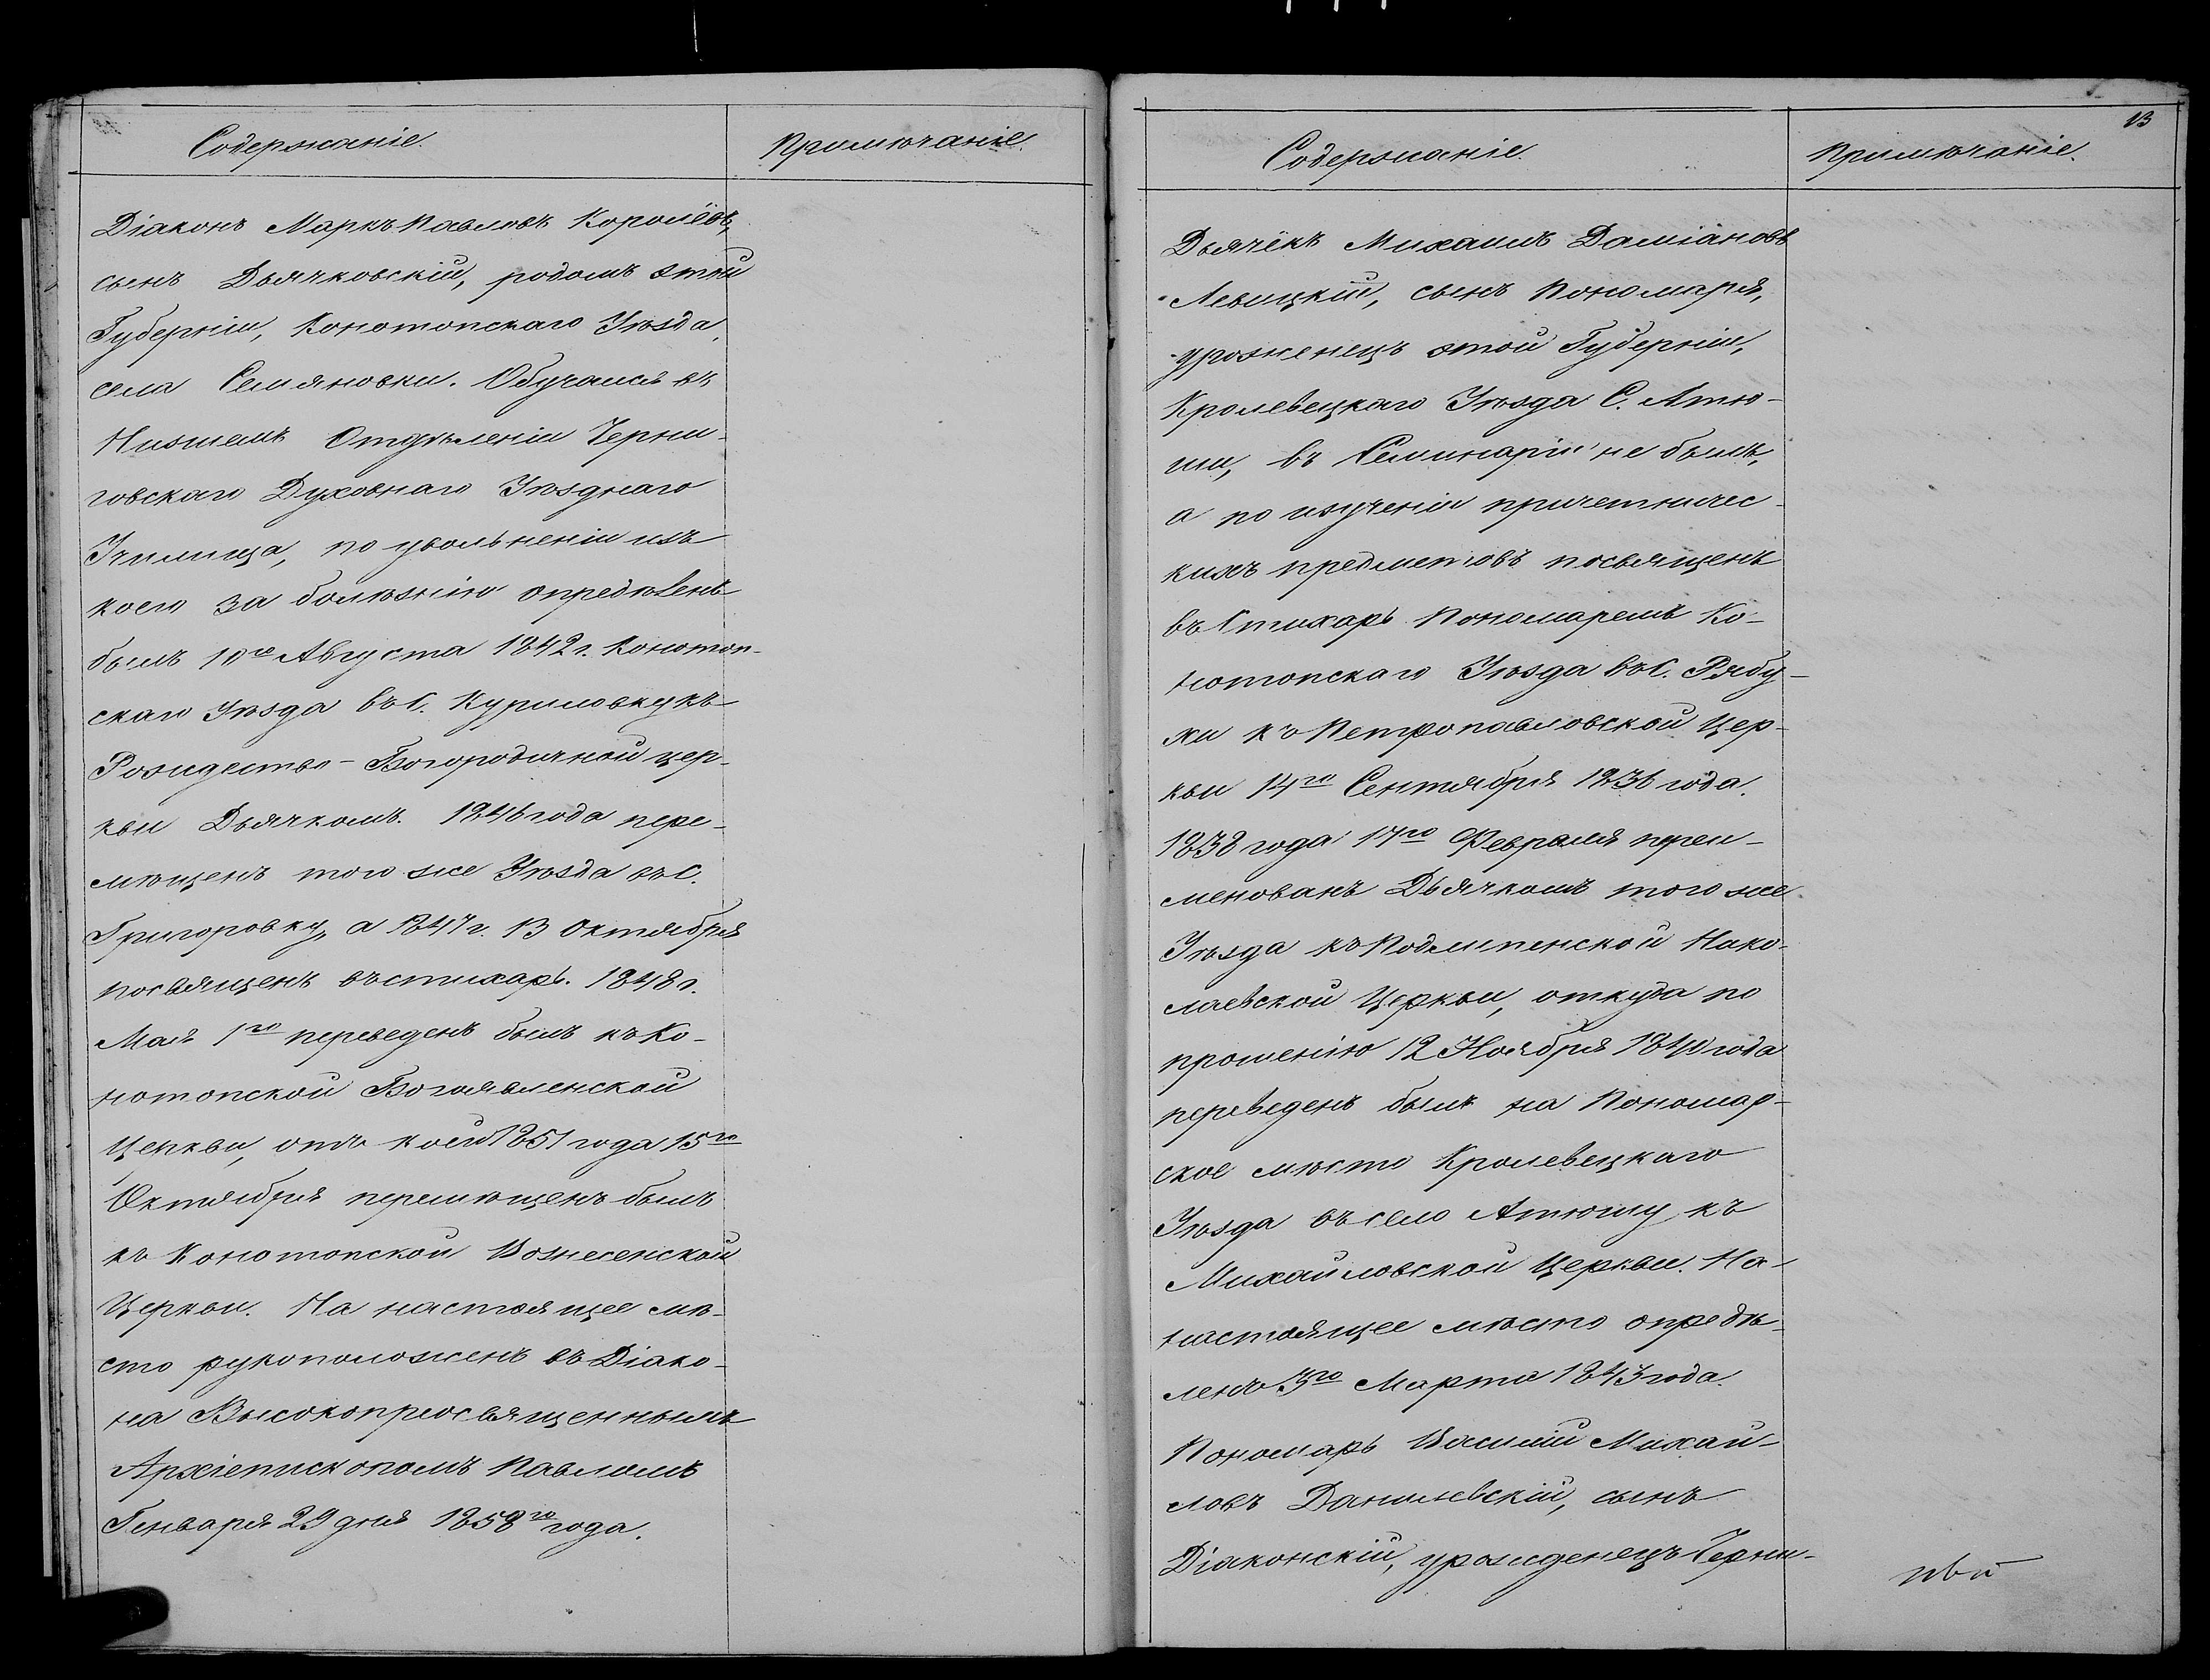 Содержаніе. Примѣчаніе.
Діаконъ Маркъ Павловъ Королёвъ,
сынъ Дьячковскій, родомъ этой
Губерніи, Конотопскаго Уѣзда,
села Семяновки. Обучался въ
Низшемъ Отдѣленіи Черни-
говскаго Духовнаго Уѣзднаго
Училища, по увольненіи изъ
коего за болѣзнію опредѣленъ
былъ 10го Августа 1842 г. Конотоп-
скаго Уѣзда въ С. Куриловку къ
Рождество-Богородичной цер-
кви Дьячкомъ. 1846 года пере-
мѣщенъ того же Уѣзда въ С.
Григоровку, а 1847 г. 13 Октября
посвященъ въ стихарь. 1848 г.
Мая 1го переведенъ былъ къ Ко-
нотопской Богоявленской
Церкви, отъ коей 1851 года 15го
Октября перемѣщенъ былъ
къ Конотопской Вознесенской
Церкви. На настоящее мѣ-
сто рукоположенъ въ Діако-
на Высокопреосвященнымъ
Архіепископомъ Павломъ
Генваря 29 дня 1858го года.
13
Содержаніе. Примѣчаніе.
Дьячёкъ Михаилъ Даміановъ
Левицкій, сынъ Пономаря,
уроженецъ этой Губерніи,
Кролевецкаго Уѣзда С. Атю-
ши, въ Семинаріи не былъ,
а по изученіи причетничес-
кихъ предметовъ посвященъ
въ Стихарь Пономаремъ Ко-
нотопскаго Уѣзда въ С. Рябу-
хи къ Петропавловской Цер-
кви 14го Сентября 1836 года.
1838 года 17го Февраля переи-
менованъ Дьячкомъ того же
Уѣзда къ Подлипенской Нико-
лаевской Церкви, откуда по
прошенію 12 Ноября 1840 года
переведенъ былъ на Пономар-
ское мѣсто Кролевецкаго
Уѣзда въ село Атюшу къ
Михайловской Церкви. На
настоящее мѣсто опредѣ-
ленъ 3го Марта 1843 года.
Пономарь Василій Михай-
ловъ Данилевскій, сынъ
Діаконскій, урожденецъ Черни-